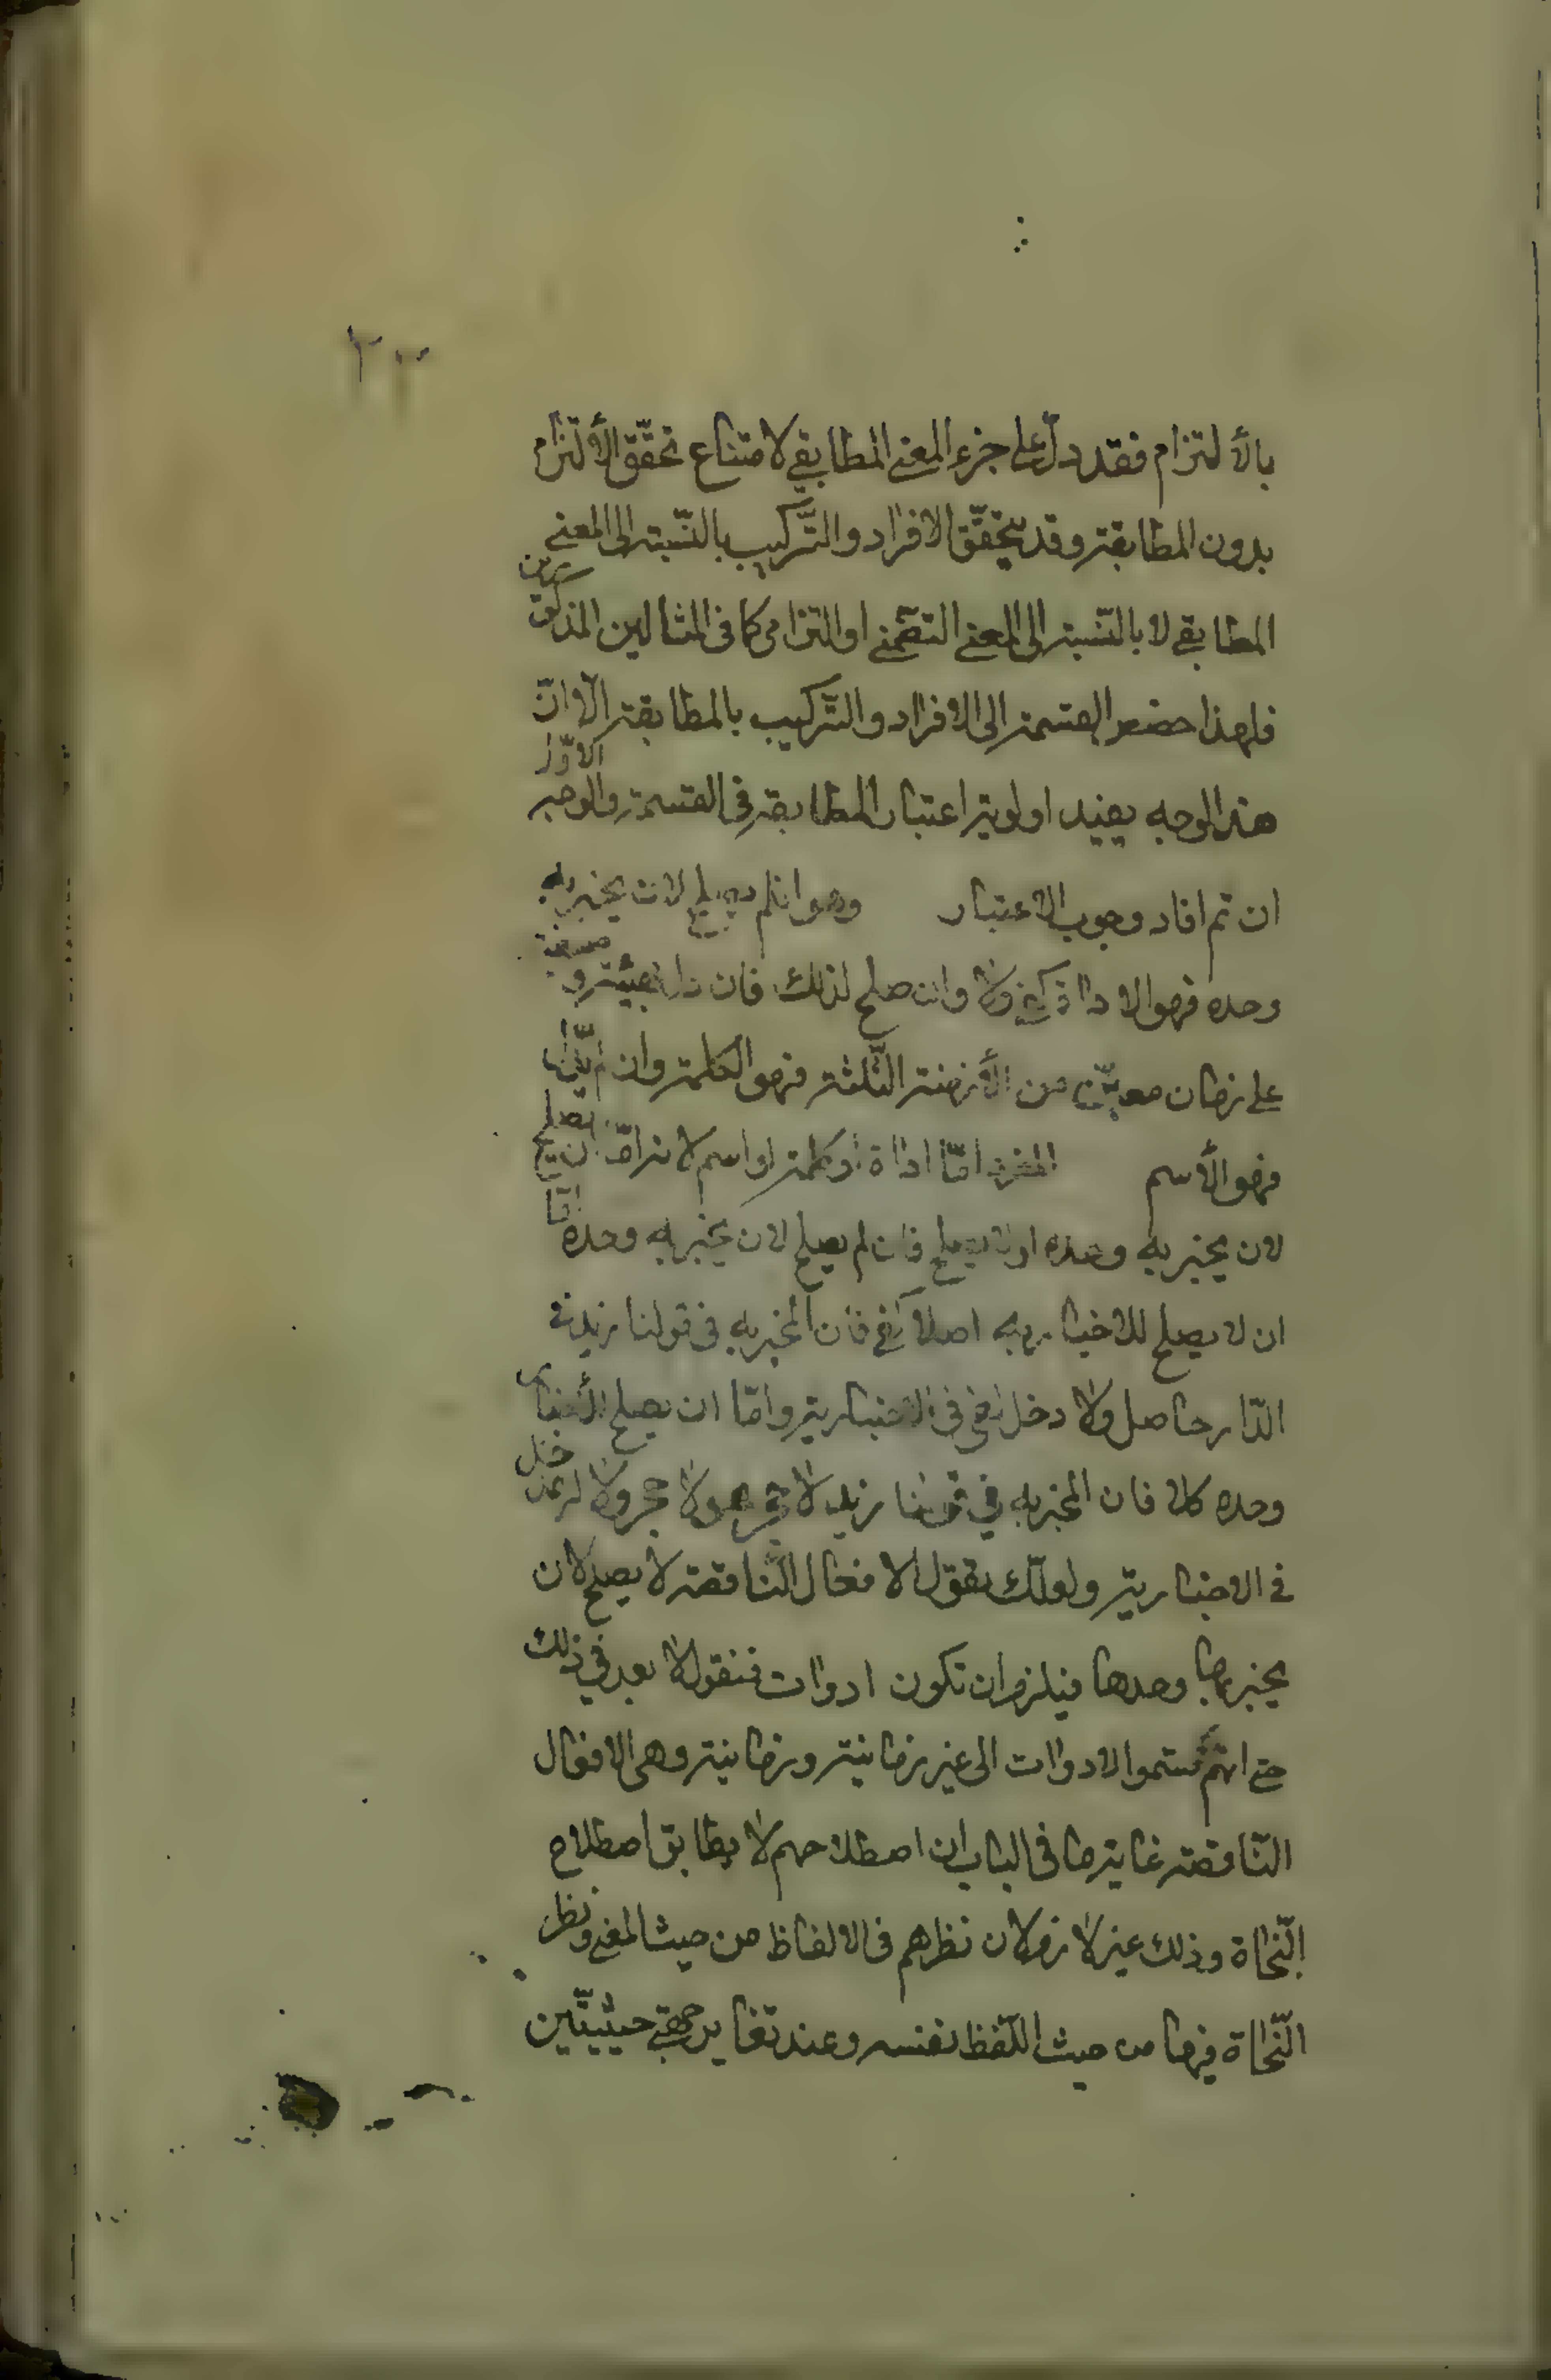 بالالتزام فقد دلّ على جزء المعنى المطابقي لامتناع تحقّق الألتزام
بدون المطابقة وقد يتحقّق الافراد والتّركيب بالنّسبة الى المعنى
المطابقي لا بالنّسبة الى المعنى التضمّني او التزامي كما فى المثالين المذكورين
فلهذا خصص القسمة الى الافراد والتّركيب بالمطابقة الّا انّ
هذا الوجه يفيد اولوية اعتبار المطابقة فى القسمة والوجه الاوّل
ان تم افاد وجوب الاعتبار وهو ان لم يصلح لان يخبر به
وحده فهو الاداة كفى ولا وان صلح لذلك فان دل بهيئته
على زمان معيّن من الأزمنة الثّلثة فهو الكلمة وان لم يدلّ
فهو الأسم المفرد امّا اداة او كلمة او اسم لانه امّا ان يصلح
لان يخبر به وحده او لا يصلح فان لم يصلح لان يخبر به وحده امّا
ان لا يصلح للاخبار به اصلا كفى فان المخبر به فى قولنا زيد فى
الدّار حاصل ولا دخل لفى فى الاخبار به وامّا ان يصلح للأخبار
وحده كلا فان المخبر به في قولنا زيد لا حجر هو لا حجر ولا له مدخل
فى الاخبار به ولعلّك تقول الافعال النّاقصة لا يصلح لان
يخبر بها وحدها فيلزم ان تكون ادوات فنقول لا بعد في ذلك
حتى انهم قسّموا الادوات الى غير زمانية وزمانية وهى الافعال
النّاقصة غاية ما فى الباب ان اصطلاحهم لا يطابق اصطلاح
النّحاة وذلك غير لازم لان نظرهم فى الالفاظ من حيث المعنى ونظر
النّحاة فيها من حيث اللّفظ نفسه وعند تغاير جهتى حيثيتين